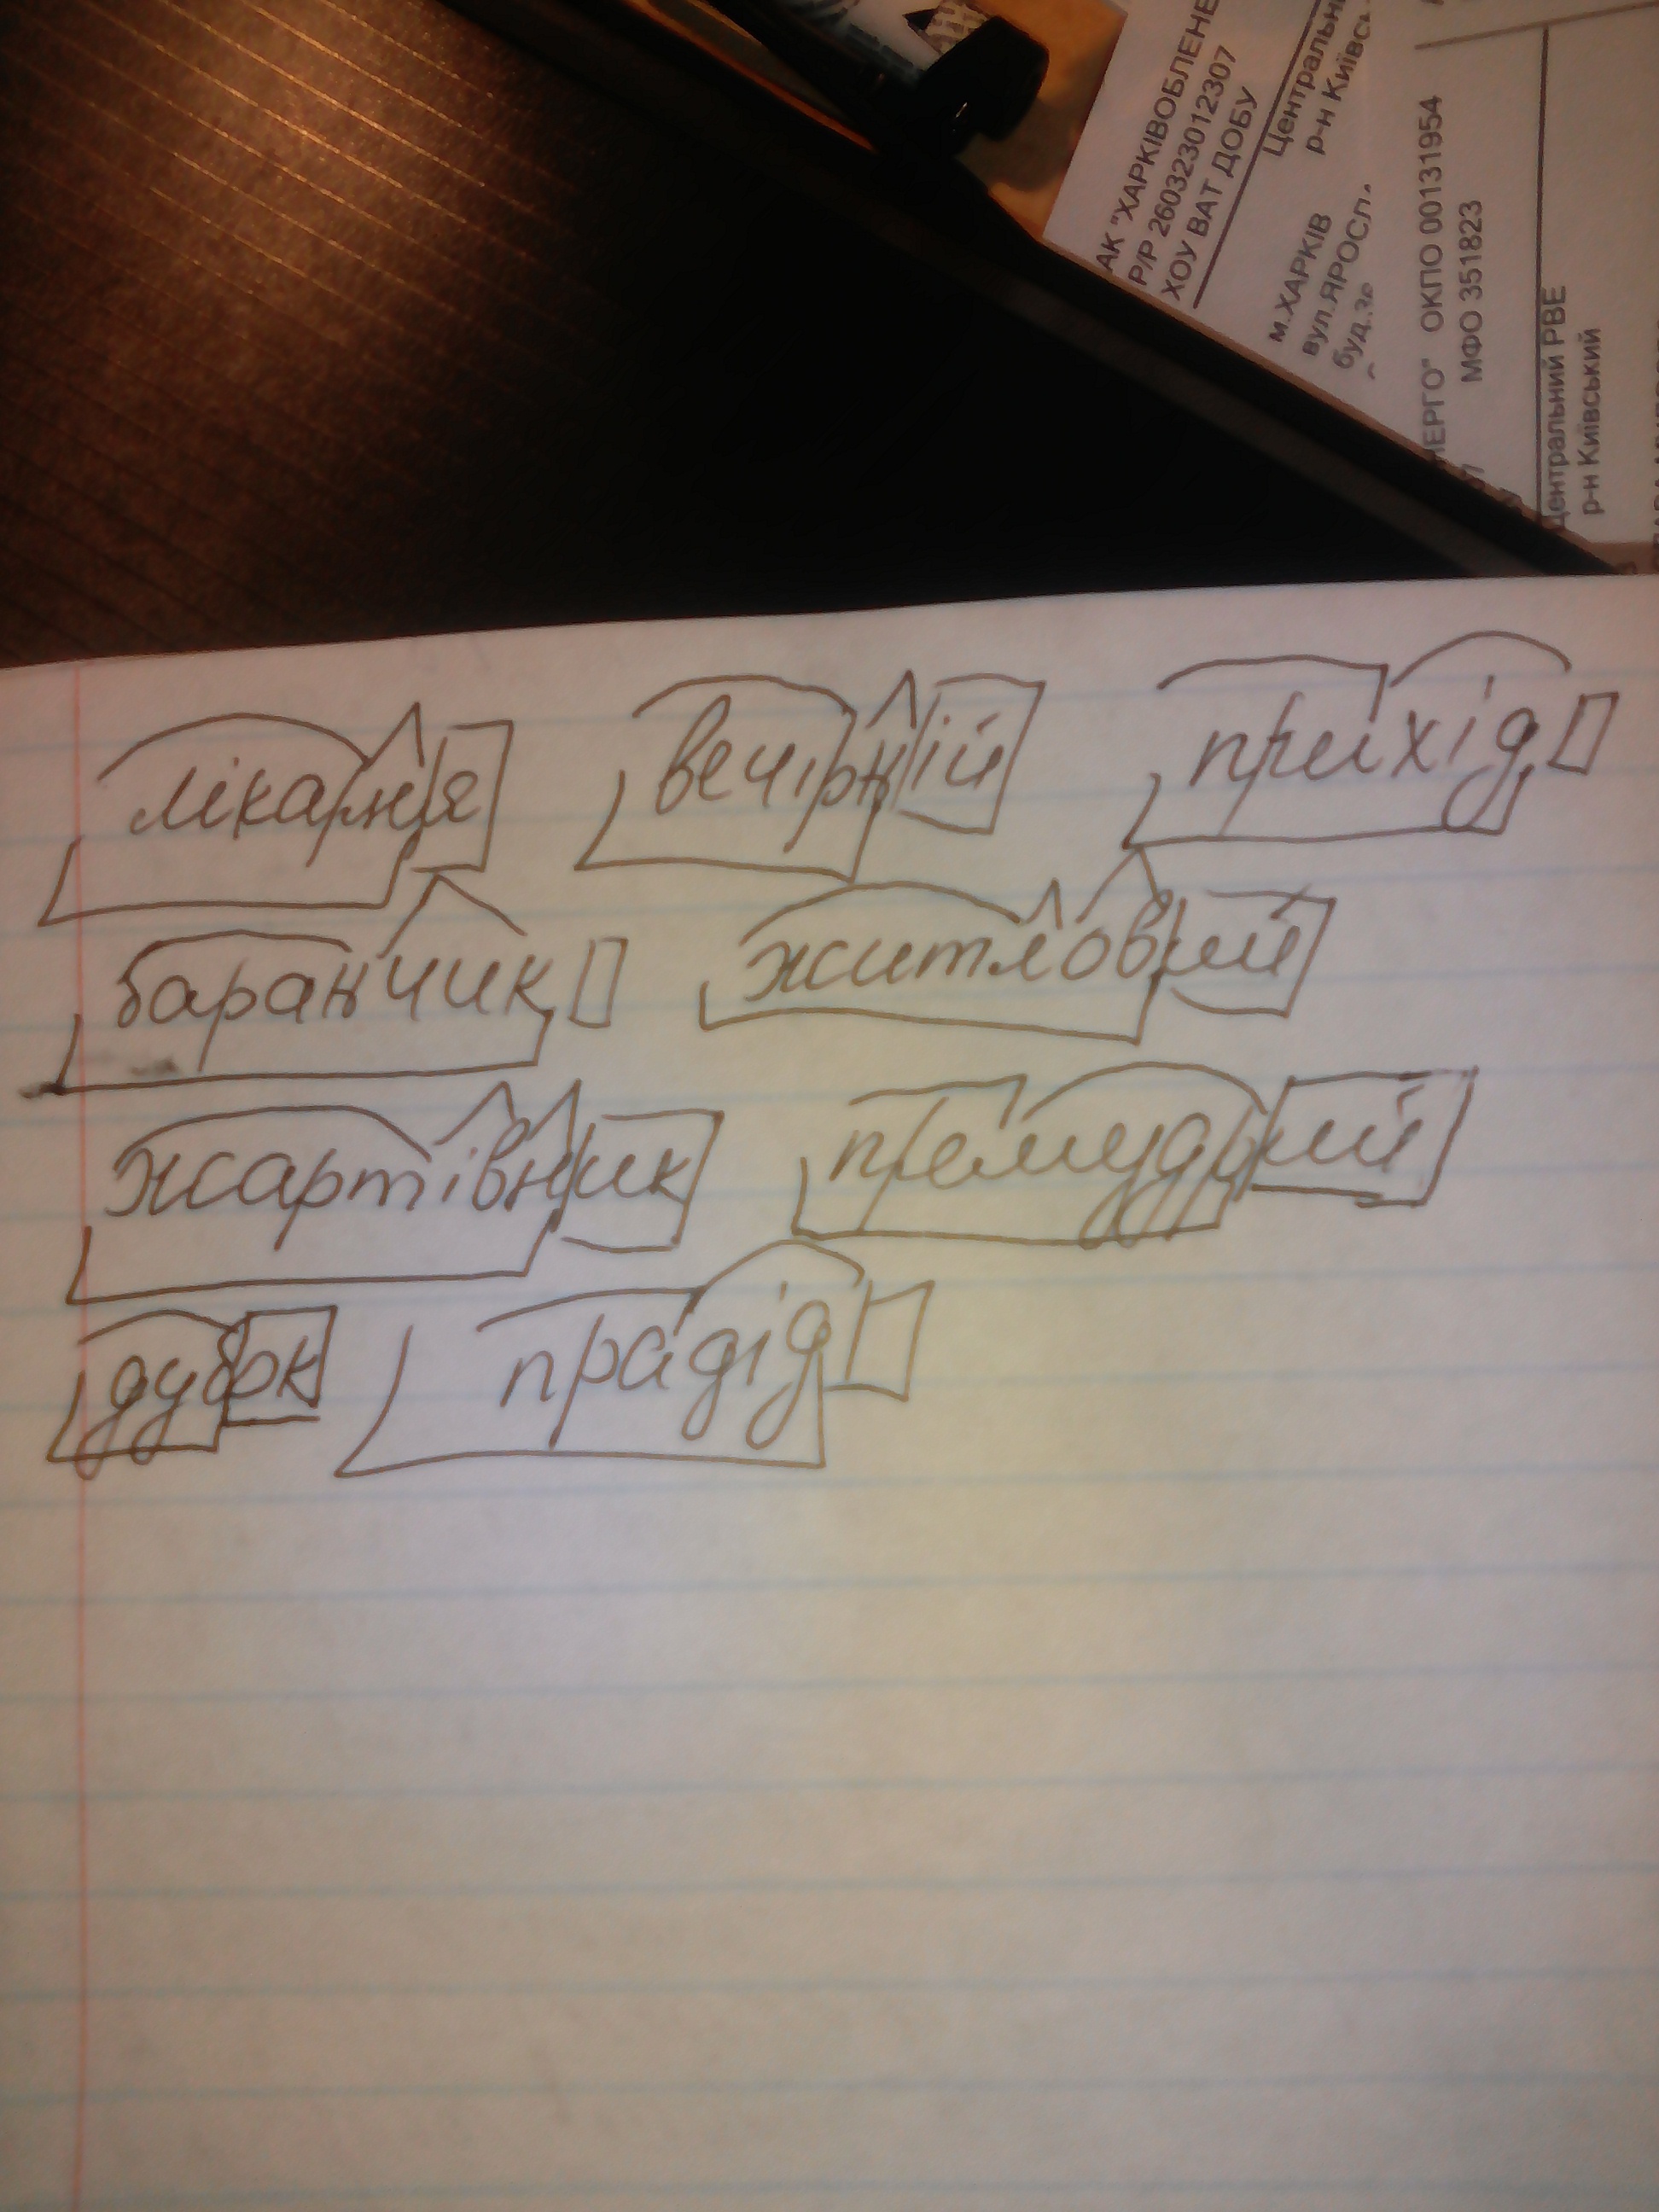 АК "ХАРКІВОБЛЕНЕ
Р/Р 26032301230​7
ХОУ ВАТ ДОБУ
Центральн
р-н Київсь
м.ХАРКІВ
вул.ЯРОСЛ
буд.
НЕРГО" ОКПО 00131954
МФО 351823
Центральний РВЕ
р-н Київський
лікарня вечірній прихід
баранчик житловий
жартівник премудрий
дубок прадід